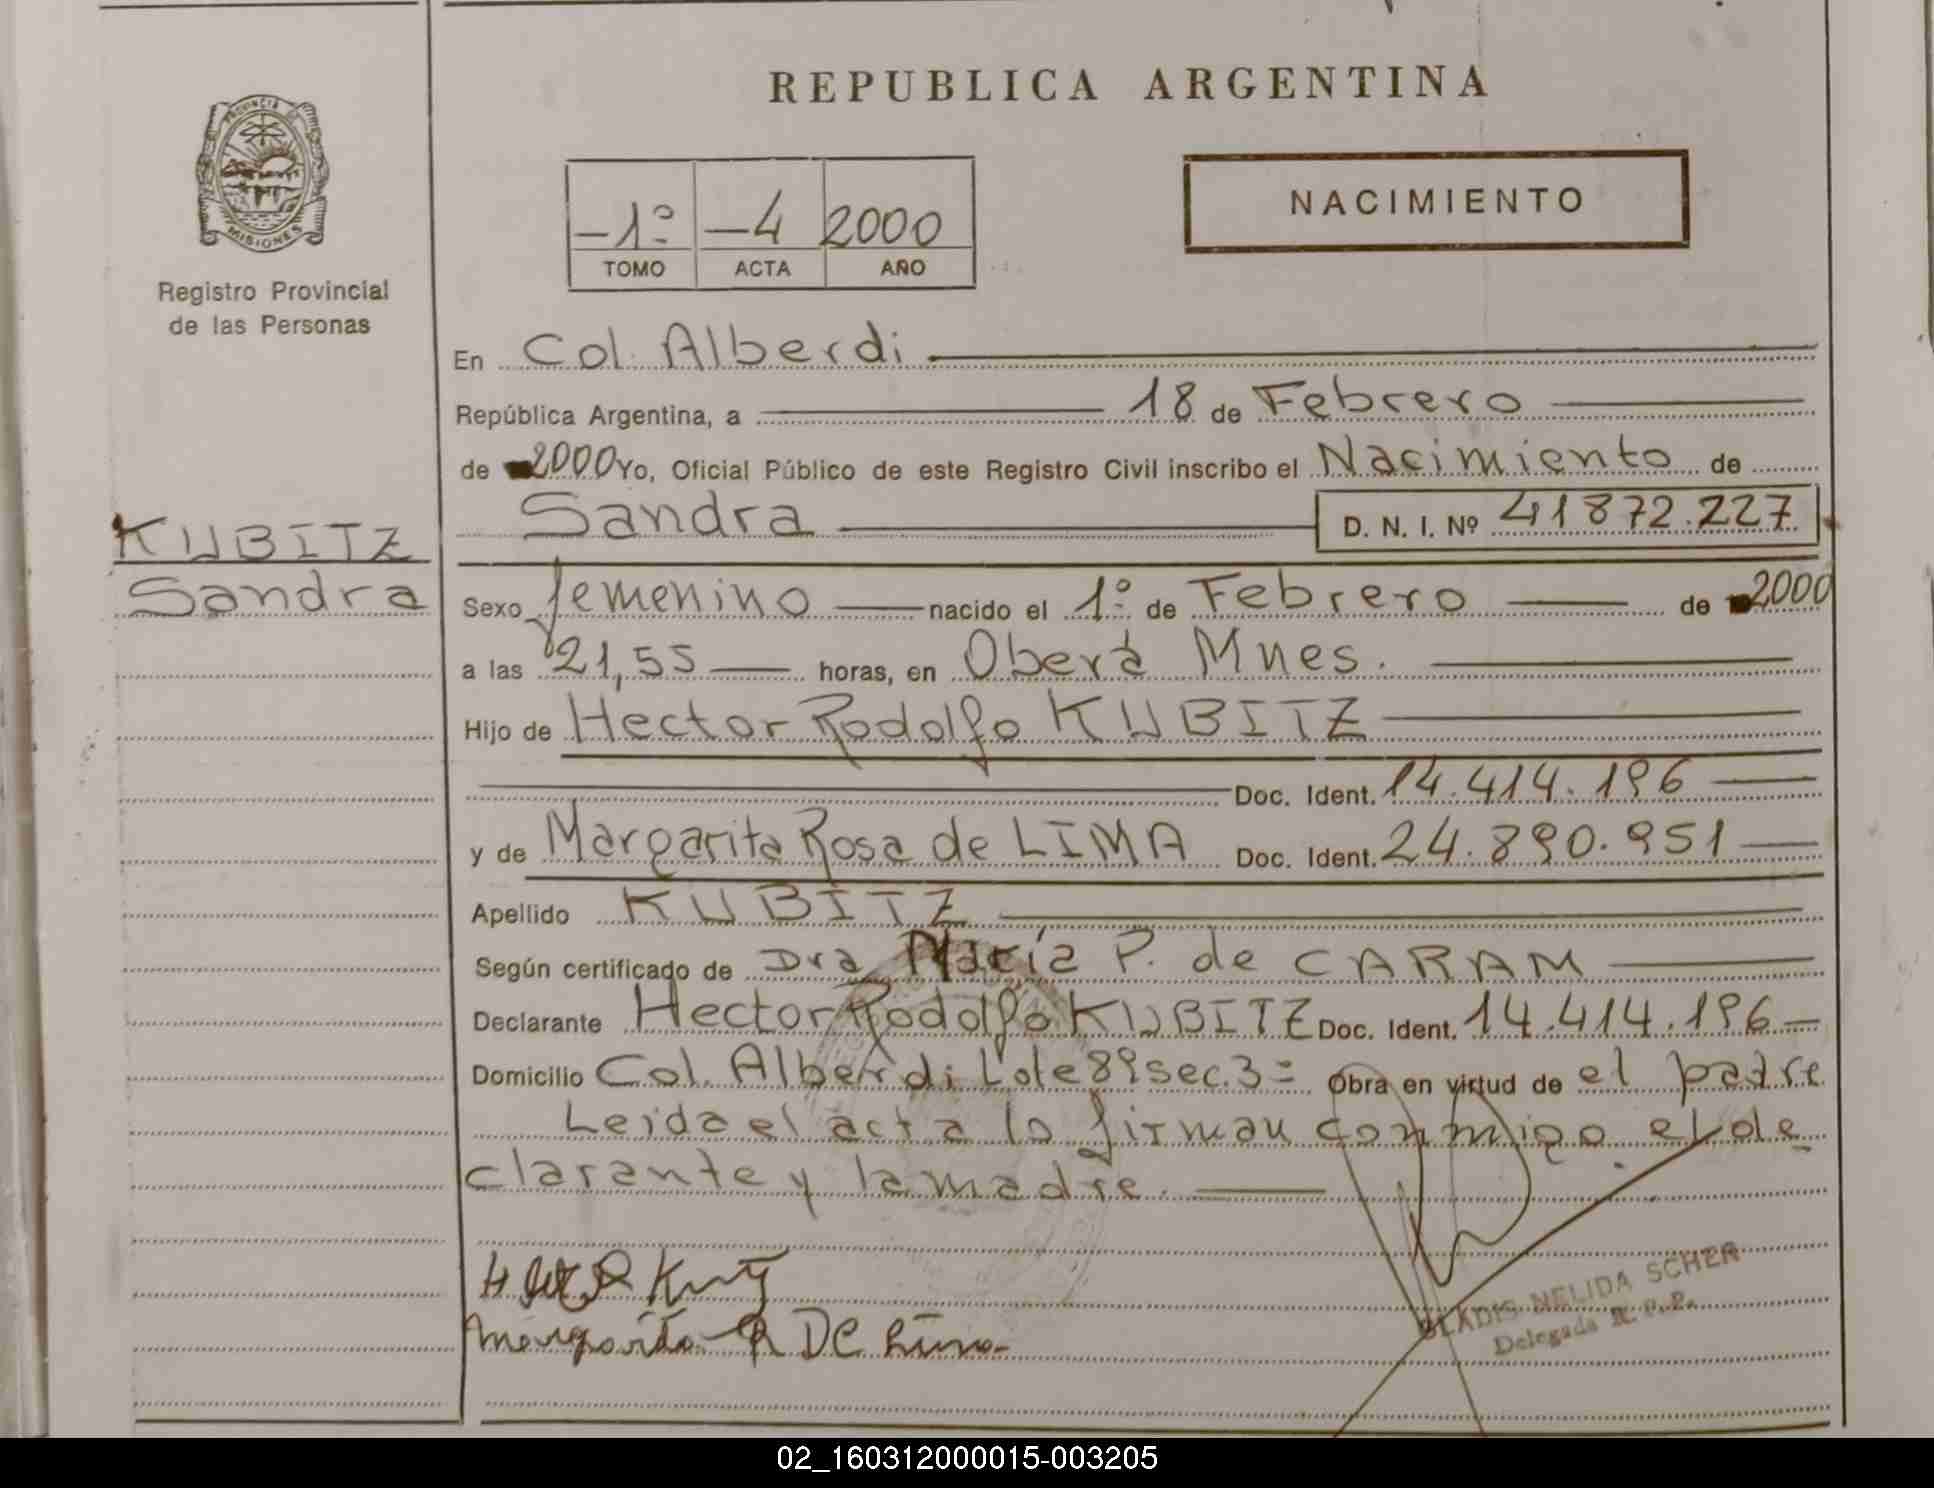 REPUBLICA ARGENTINA
PROVINCIA DE MISIONES
Registro Provincial
de las Personas
-1º -4 2000
TOMO ACTA AÑO
NACIMIENTO
En Col. Alberdi
República Argentina, a 18 de Febrero
de 2000 Yo, Oficial Público de este Registro Civil inscribo el Nacimiento de
Sandra D. N. I. Nº 41872.227
KUBITZ
Sandra
Sexo femenino nacido el 1º de Febrero de 2000
a las 21,55 horas, en Oberá Mnes.
Hijo de Hector Rodolfo KUBITZ
Doc. Ident. 14.414.196
y de Margarita Rosa de LIMA Doc. Ident. 24.890.951
Apellido KUBITZ
Según certificado de Dra María P. de CARAM
Declarante Hector Rodolfo KUBITZ Doc. Ident. 14.414.196
Domicilio Col. Alberdi Lote 89 sec. 3= Obra en virtud de el padre
Leida el acta la firman conmigo el de
clarante y la madre.
Margarita R DE Lima
GLADIS NELIDA SCHER
Delegada R. P. P.
02_160312000015-003205